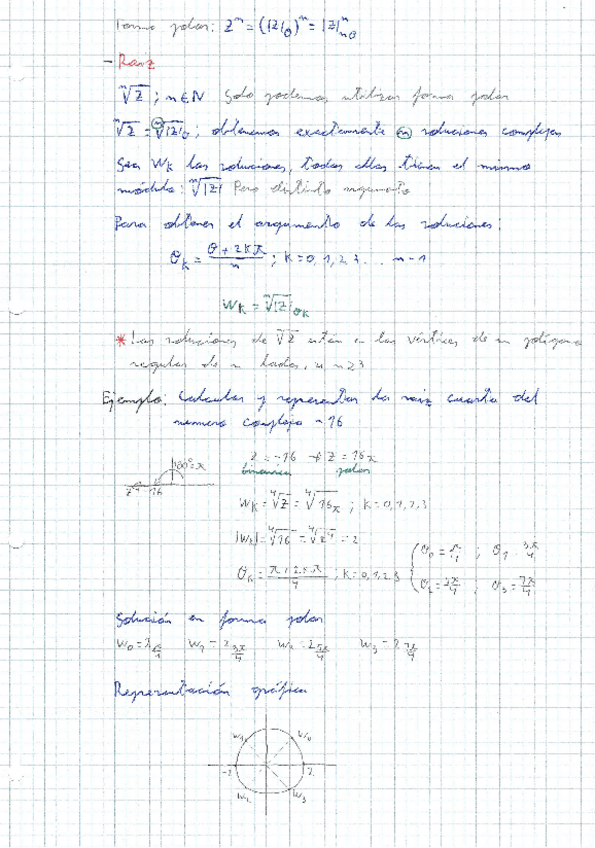 Forma polar: Zⁿ = (|Z|_θ)ⁿ = |Z|ⁿ_nθ
- Raiz
ⁿ√Z ; n∈N Solo podemos utilizar forma polar
ⁿ√Z = ⁿ√|Z|_θ ; obtenemos exactamente n soluciones complejas
Sea W_K las soluciones, todas ellas tienen el mismo
módulo: ⁿ√|Z| Pero distinto argumento
Para obtener el argumento de las soluciones:
θ_K = (θ + 2Kπ)/n ; K = 0, 1, 2, 3 ... n-1
W_K = ⁿ√|Z|_θK
* Las soluciones de ⁿ√Z están en los vértices de un polígono
regular de n lados, n≥3
Ejemplo: Calcular y representar la raiz cuarta del
numero complejo -16
Z = -16 → Z = 16_π
binómica polar
180º=π
Z -16
W_K = ⁴√Z = ⁴√16_π ; K = 0,1,2,3
|W_K| = ⁴√16 = ⁴√2⁴ = 2
θ_K = (π + 2Kπ)/4 ; K = 0,1,2,3 { θ₀ = π/4 ; θ₁ = 3π/4
θ₂ = 5π/4 ; θ₃ = 7π/4
Solución en forma polar
W₀ = 2_π/4 W₁ = 2_3π/4 W₂ = 2_5π/4 W₃ = 2_7π/4
Representación gráfica
W₁ W₀
-2 2
W₂ W₃